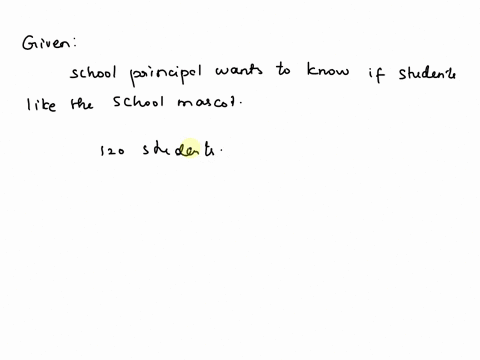 Given:
school principal wants to know if students
like the school mascot.
120 students.